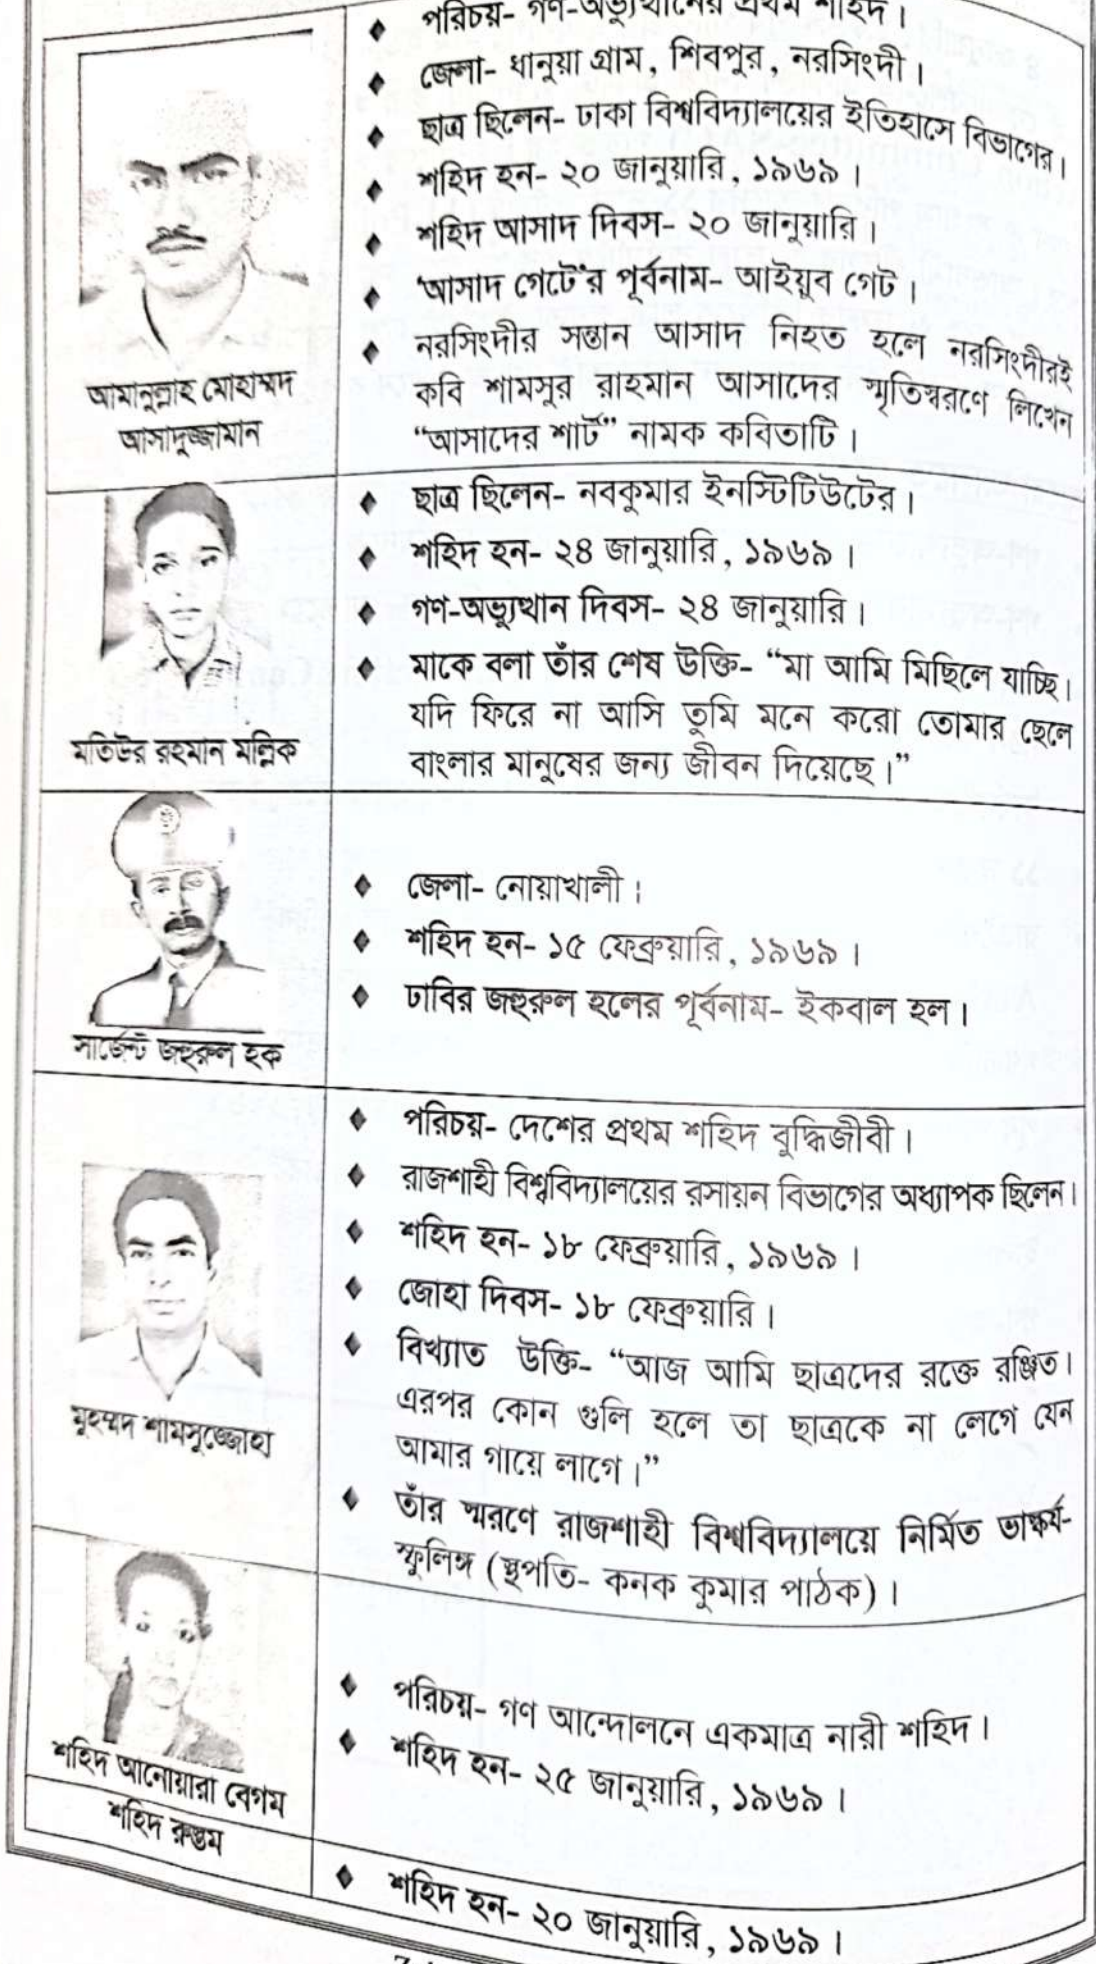 পরিচয়- গণ-অভ্যুত্থানের প্রথম শহিদ।
জেলা- ধানুয়া গ্রাম, শিবপুর, নরসিংদী।
ছাত্র ছিলেন- ঢাকা বিশ্ববিদ্যালয়ের ইতিহাসে বিভাগের।
শহিদ হন- ২০ জানুয়ারি, ১৯৬৯।
শহিদ আসাদ দিবস- ২০ জানুয়ারি।
'আসাদ গেটে'র পূর্বনাম- আইয়ুব গেট।
নরসিংদীর সন্তান আসাদ নিহত হলে নরসিংদীরই
কবি শামসুর রাহমান আসাদের স্মৃতিস্বরণে লিখেন
“আসাদের শার্ট” নামক কবিতাটি।
আমানুল্লাহ মোহাম্মদ
আসাদুজ্জামান
ছাত্র ছিলেন- নবকুমার ইনস্টিটিউটের।
শহিদ হন- ২৪ জানুয়ারি, ১৯৬৯।
গণ-অভ্যুত্থান দিবস- ২৪ জানুয়ারি।
মাকে বলা তাঁর শেষ উক্তি- “মা আমি মিছিলে যাচ্ছি।
যদি ফিরে না আসি তুমি মনে করো তোমার ছেলে
বাংলার মানুষের জন্য জীবন দিয়েছে।”
মতিউর রহমান মল্লিক
জেলা- নোয়াখালী।
শহিদ হন- ১৫ ফেব্রুয়ারি, ১৯৬৯।
ঢাবির জহুরুল হলের পূর্বনাম- ইকবাল হল।
সার্জেন্ট জহুরুল হক
পরিচয়- দেশের প্রথম শহিদ বুদ্ধিজীবী।
রাজশাহী বিশ্ববিদ্যালয়ের রসায়ন বিভাগের অধ্যাপক ছিলেন।
শহিদ হন- ১৮ ফেব্রুয়ারি, ১৯৬৯।
জোহা দিবস- ১৮ ফেব্রুয়ারি।
বিখ্যাত উক্তি- “আজ আমি ছাত্রদের রক্তে রঞ্জিত।
এরপর কোন গুলি হলে তা ছাত্রকে না লেগে যেন
আমার গায়ে লাগে।”
তাঁর স্মরণে রাজশাহী বিশ্ববিদ্যালয়ে নির্মিত ভাষ্কর্য-
স্ফুলিঙ্গ (স্থপতি- কনক কুমার পাঠক)।
মুহম্মদ শামসুজ্জোহা
পরিচয়- গণ আন্দোলনে একমাত্র নারী শহিদ।
শহিদ হন- ২৫ জানুয়ারি, ১৯৬৯।
শহিদ আনোয়ারা বেগম
শহিদ রুস্তম
শহিদ হন- ২০ জানুয়ারি, ১৯৬৯।